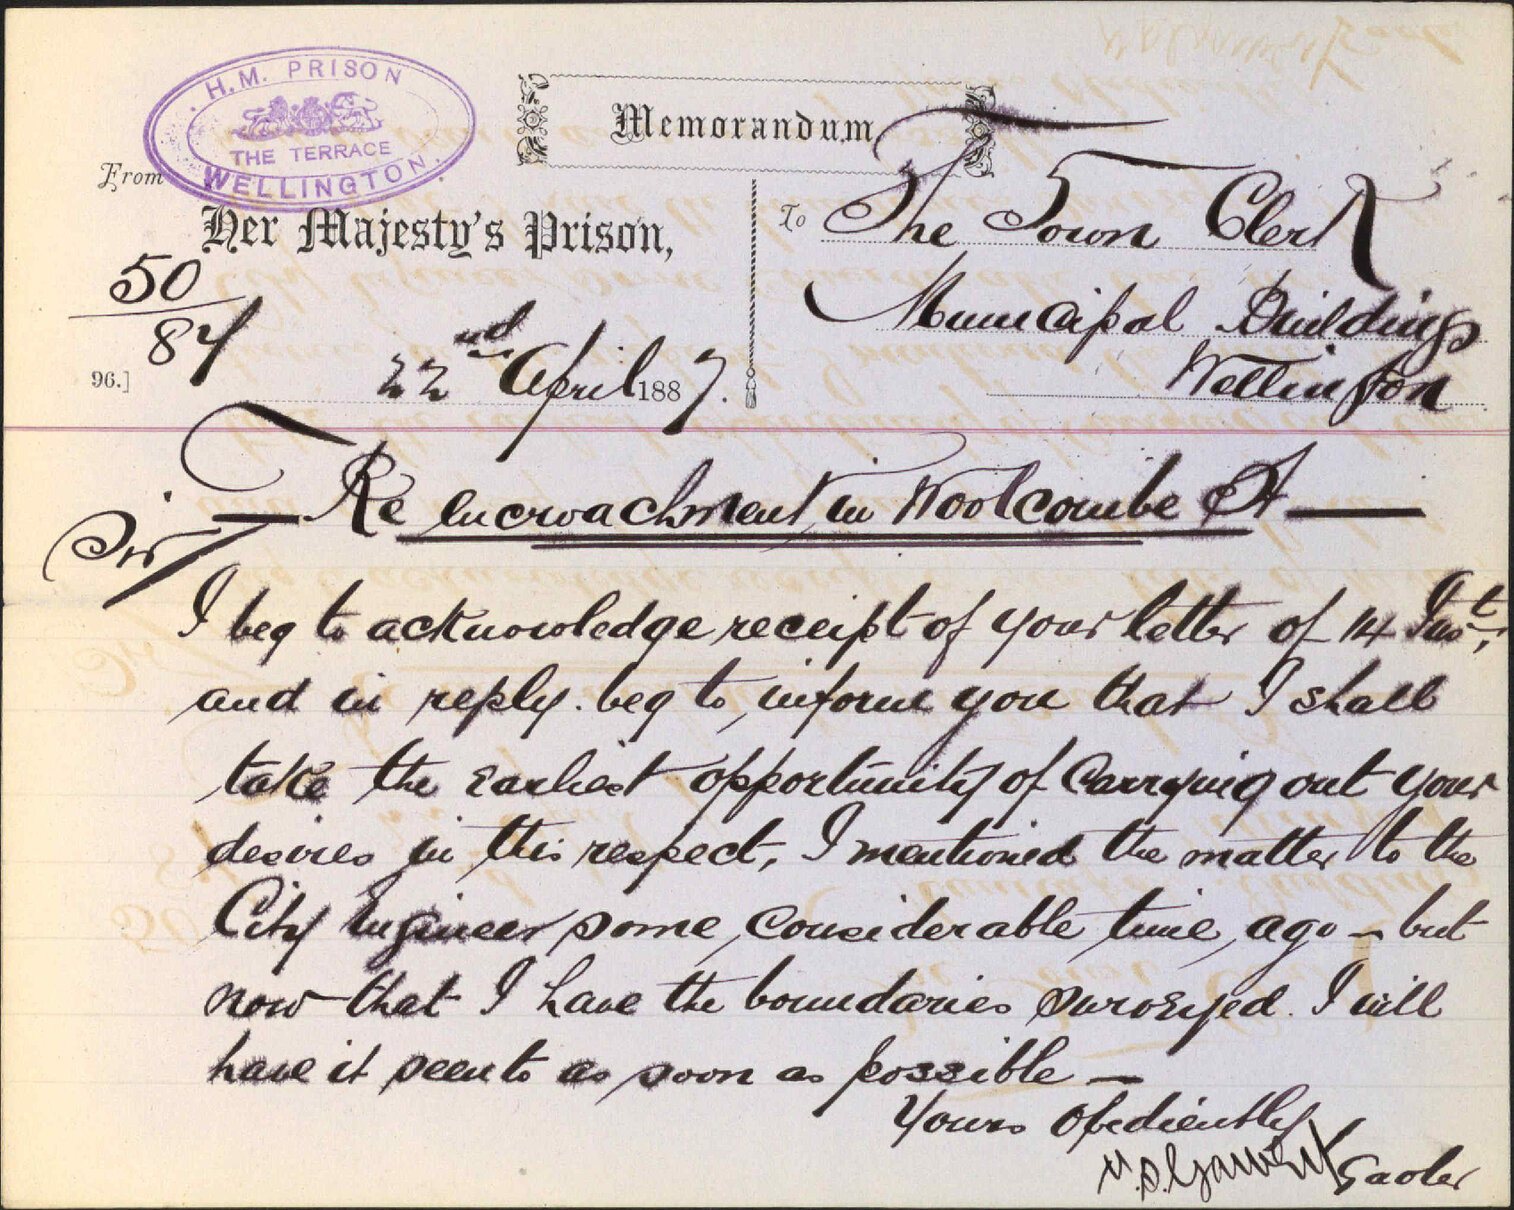 H.M. PRISON
THE TERRACE
WELLINGTON.
Memorandum
From
Her Majesty's Prison,
50
87
96.]
22nd April 1887.
To The Town Clerk
Municipal Buildings
Wellington
Re Encroachment in Woolcombe St
Sir
I beg to acknowledge receipt of your letter of 14 Inst,
and in reply. beg to, inform you that I shall
take the Earliest opportunity of Carrying out your
desires in this respect, I mentioned the matter to the
City Engineer some, considerable time, ago - but
now that I have the boundaries surveyed. I will
have it seen to as soon as possible -
Yours Obediently
Gaoler